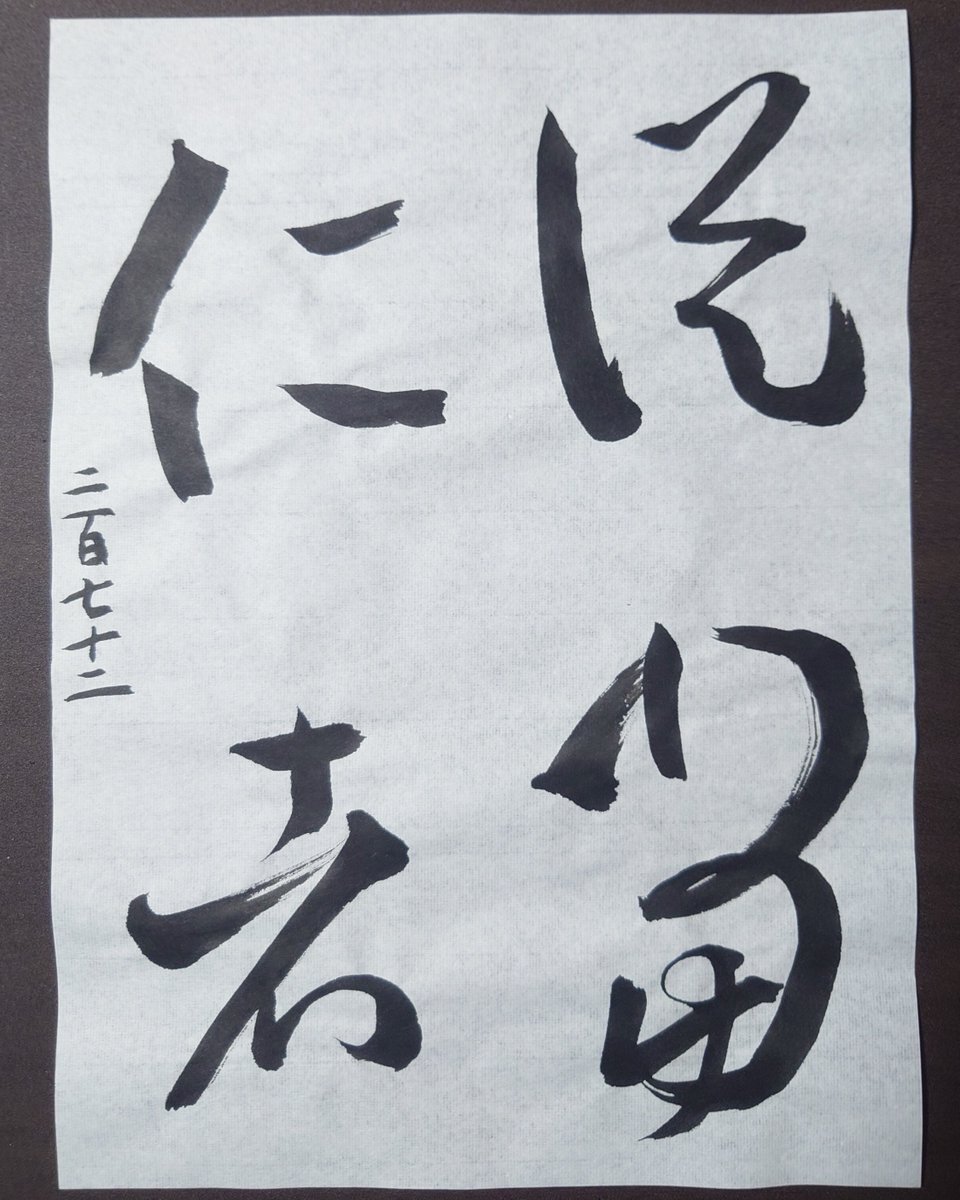 留
仁者
二百七十二